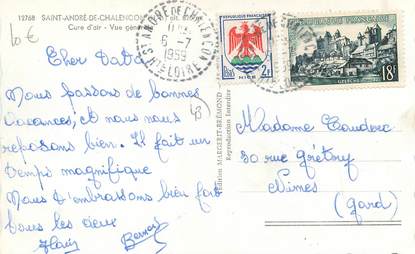 10 €
12768 SAINT-ANDRÉ-DE-CHALENCON
Cure d'air - Vue
Cher Tata
Nous passons de bonnes
vacances, et nous nous
reposons bien. Il fait un
temps magnifique
Nous t'embrassons bien fort
tous les deux
ST ANDRÉ DE CHALENCON
6-7
1959
Hte LOIRE
RÉPUBLIQUE FRANÇAISE
NICE
18F
Edition MARGERIT-BRÉMOND
Reproduction Interdite
Madame
30 rue Grétry
Nîmes
(Gard)